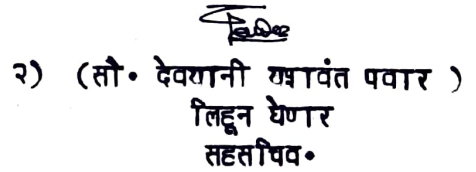 २) (सौ. देवयानी यशवंत पवार )
लिहून घेणार
सहसचिव.